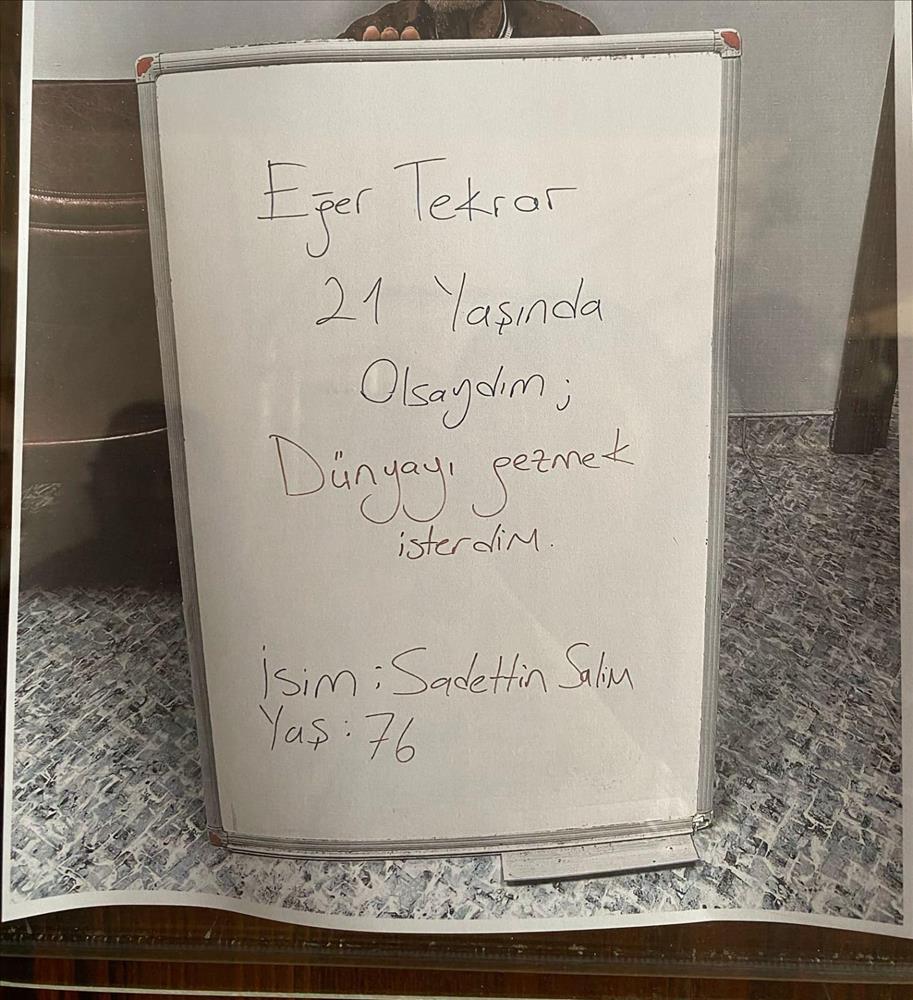 Eğer Tekrar
21 Yaşında
Olsaydım;
Dünyayı gezmek
isterdim.
İsim: Sadettin Salim
Yaş: 76